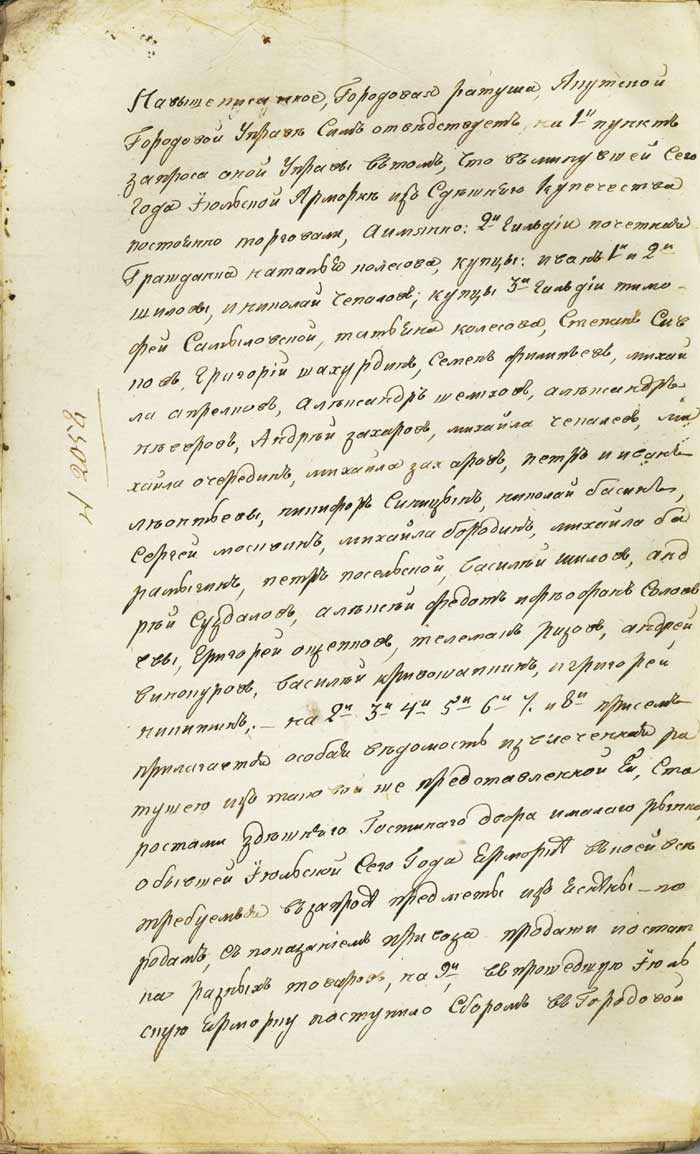 На вышеписанное, Городовая ратуша, Якутской
Городовой Управѣ Симъ отвѣтствуетъ, на 1й пунктъ
запроса оной Управы вѣтомъ, что въ минувшей Сего
Года Іюльской Ярморкѣ изъ Сдѣшняго Купечества
постоянно торговали, Аимянно: 2й Гильдіи почетная
Гражданка наталья колесова, купцы: иванъ 1й и 2й
шиловы, и николай чепалов; купцы 3й Гильдіи тимо
фей Самыловской, татьяна колесова, Степанъ Си
нов, Григорій шахурдинъ, Семенъ филипьев, михай
ла апрелков, Александръ шелихов, александръ
невѣров, Андрей захаров, михайла чепалов, ми
хайла очерединъ, михайла захаров, петръ и иванъ
леонтьевы, никифоръ Синицынъ, николай басинъ,
Сергей москвинъ, михайла бородинъ, михайла ба
рамыгинъ, петръ посельской, василій шилов, анд
рѣй Суздалов, алексѣй федотъ и феофанъ Соловь
евы, Григорей ощепков, андрей
винокуров, василій кривошапкин, и григорей
никитинъ; — на 2й 3й 4й 5й 6й 7. и 8й при семъ
прилагается особая вѣдомость извлеченная ра
тушею изъ таковой же представленной Ей, Ста
ростами здѣшняго Гостинаго двора и малаго рынка,
о бывшей Іюльской Сего Года Ярморкѣ въ коей всѣ
требуемыя въ запросѣ предметы изъяснены — по
родамъ, съ показаніемъ привоза продажи и остат
ка разныхъ товаровъ, на 9й, въ прошедшую Іюль
скую Ярморку поступило Сборомъ въ Городовой
N 2058